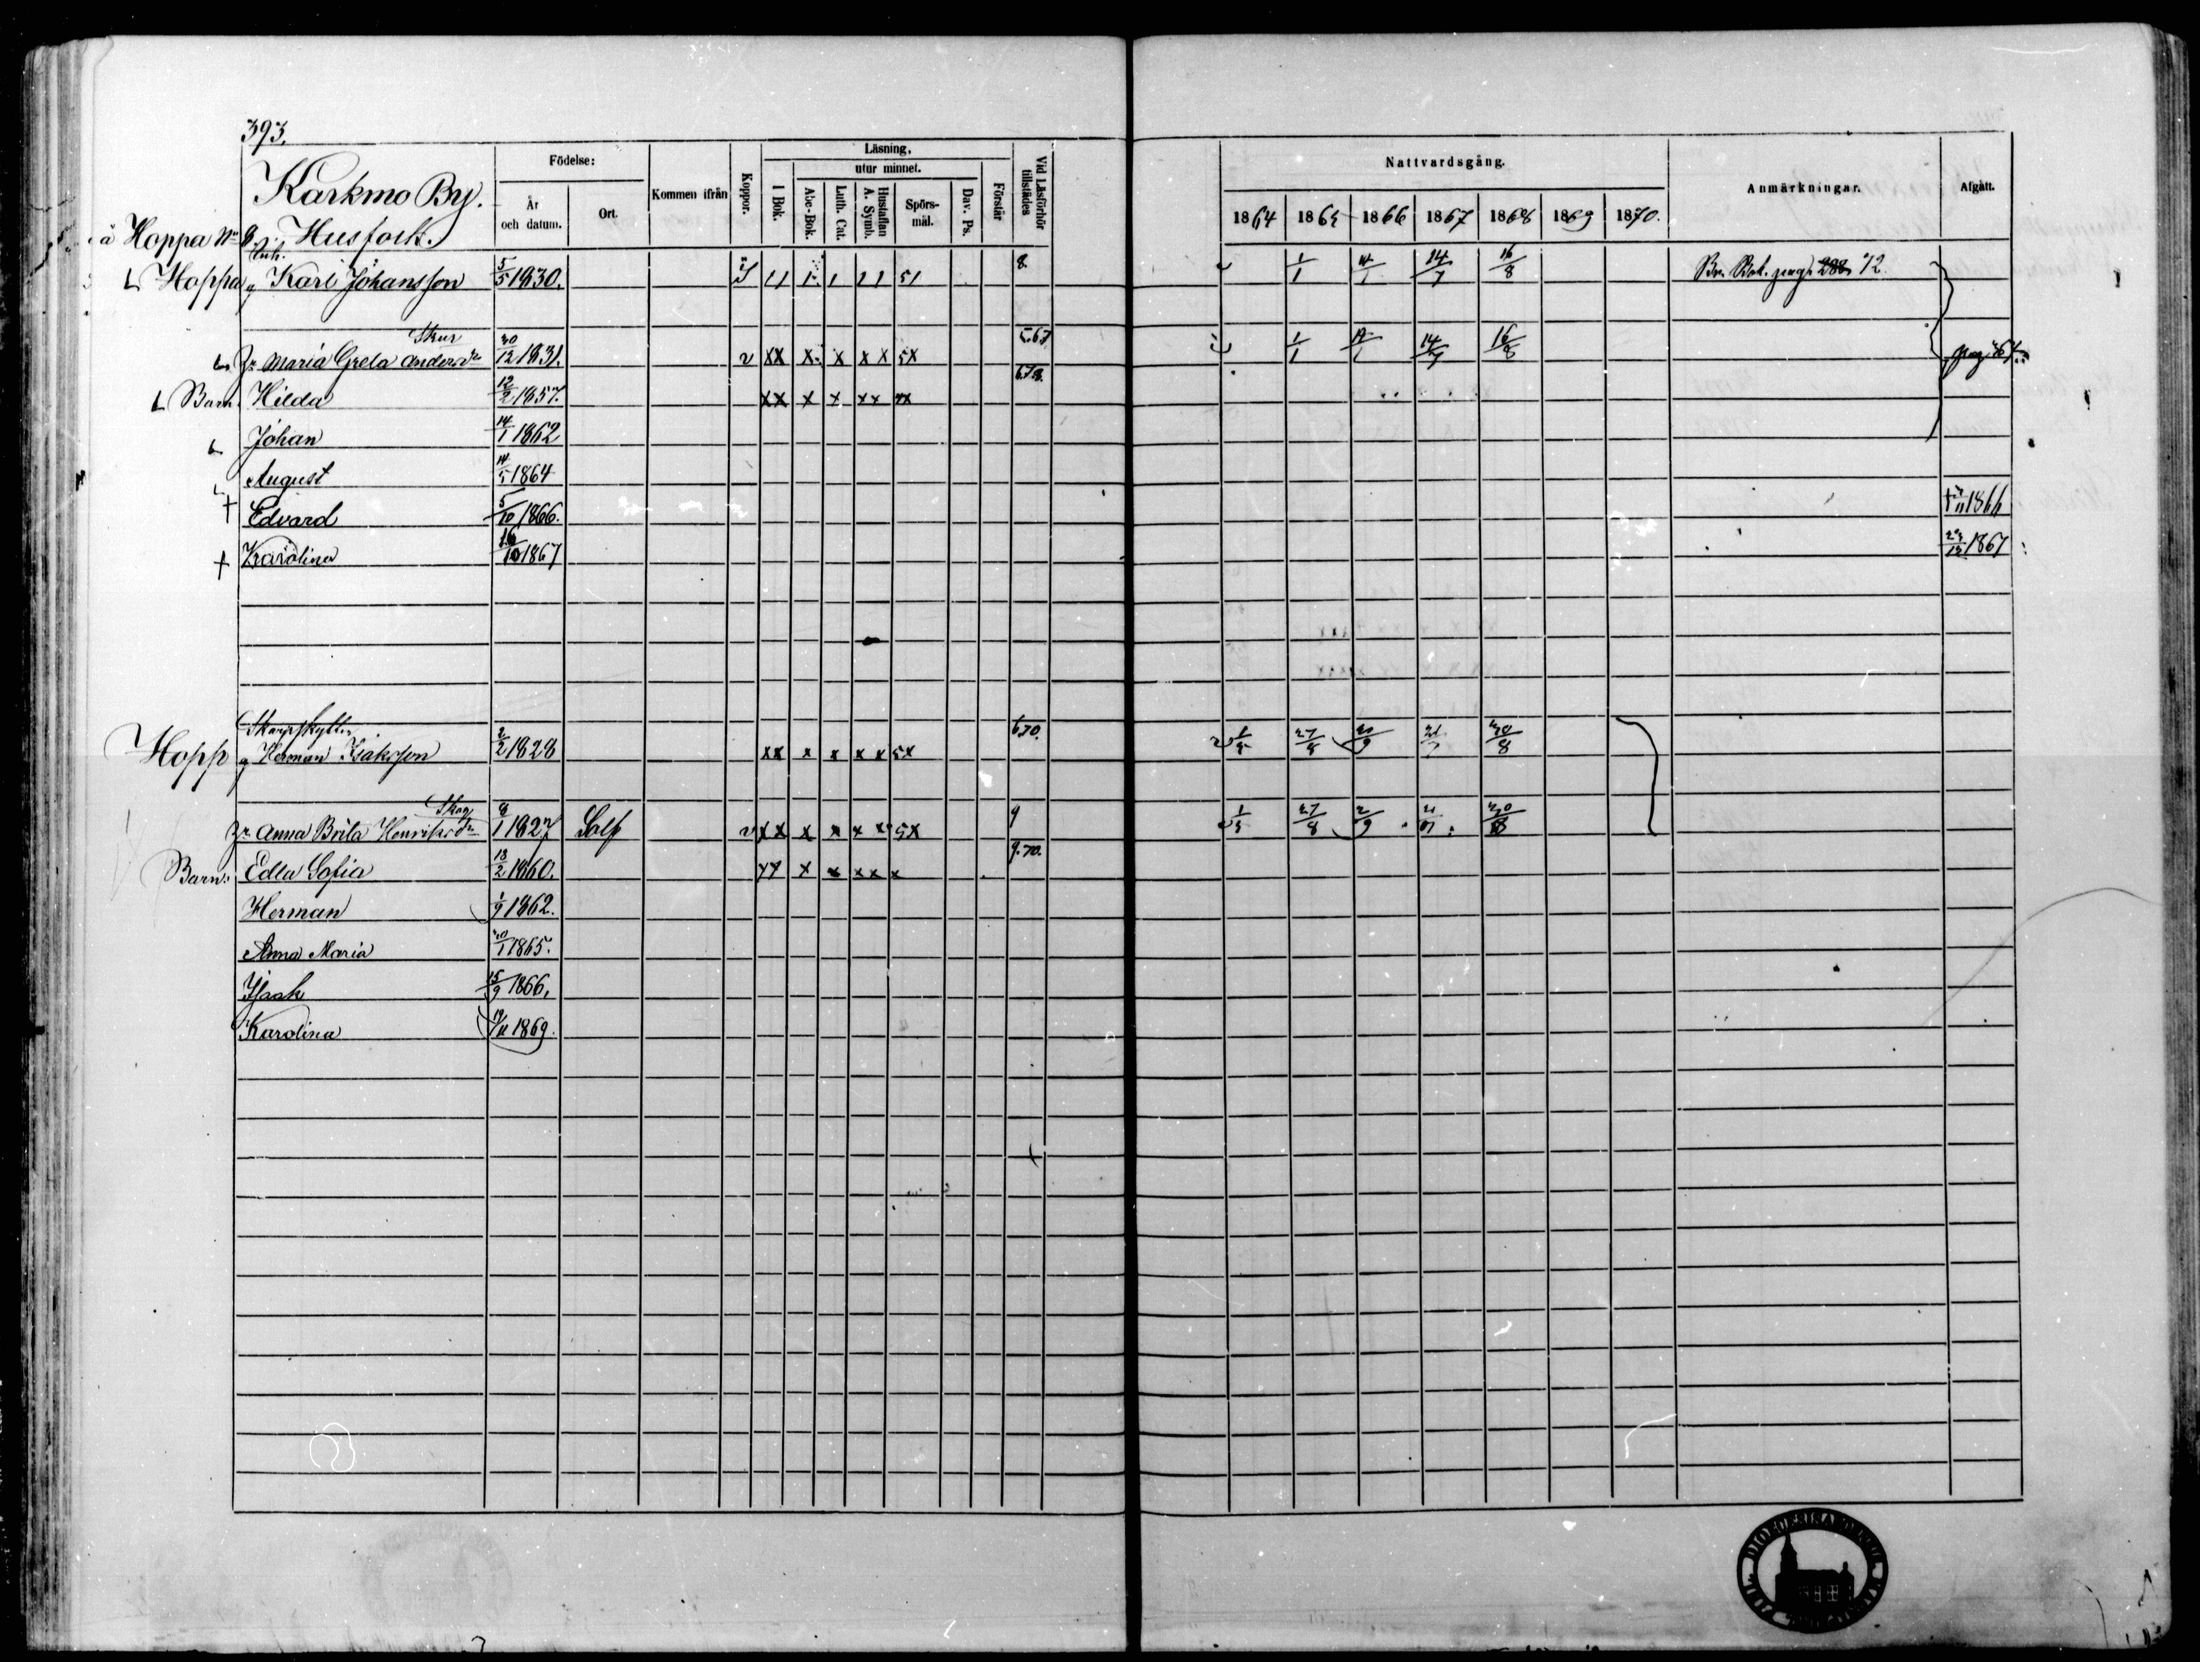 393.
Karkmo By.
Födelse:
År
och datum.
Ort.
Kommen ifrån
Koppor.
Läsning,
utur minnet.
I Bok.
Abc-Bok.
Luth. Cat.
Hustaflan
A. Symb.
Spörs-
mål.
Dav. Ps.
Förstår
Vid Läsförhör
tillstädes
Nattvardsgång.
1864 1865 1866 1867 1868 1869 1870.
Anmärkningar.
Afgått.
å Hoppa
Husfolk.
Hoppa Karl Johansson 5/5 1830. 11 1 1 11 51 8. 1/1 14/7 16/8 Bok pag. 288 12.
Skur
Maria Greta Anders dr 30/12 1831. v xx x x x x 5x 5.6.7 1/1 14/7 16/8 pag 467
Barn. Hilda 12/2 1857. xx x x xx 6.7.8.
Johan 14/1 1862
August 14/5 1864
+ Edvard 5/10 1866. 1866
+ Karolina 16/10 1867 1867
Skarpskytten
Hopp Herman Isaksson 2/2 1828 xx x x x x 5x 6.70. 27/8 20/9 30/8
Skog
Anna Brita Henriksdr 8/1 1827 Solf v xx x x x x 5x 9 27/8
Barn: Edla Sofia 18/2 1860. x x x x x 9.70.
Herman 1/9 1862.
Anna Maria 1865.
Isaak 15/9 1866,
Karolina 19/11 1869.